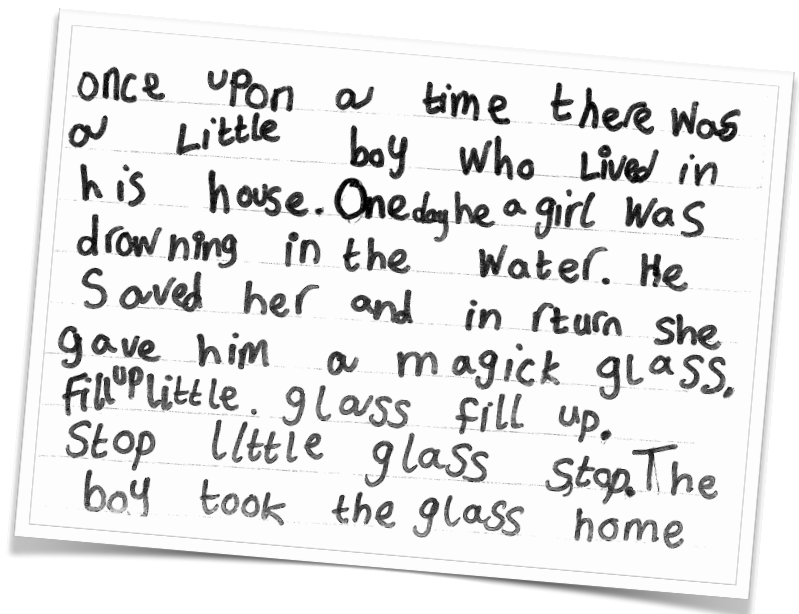 once upon a time there was
a Little boy who Lived in
his house. One day he a girl was
drowning in the water. He
Saved her and in rturn she
gave him a magick glass.
fill up little. glass fill up.
Stop little glass stop. The
boy took the glass home